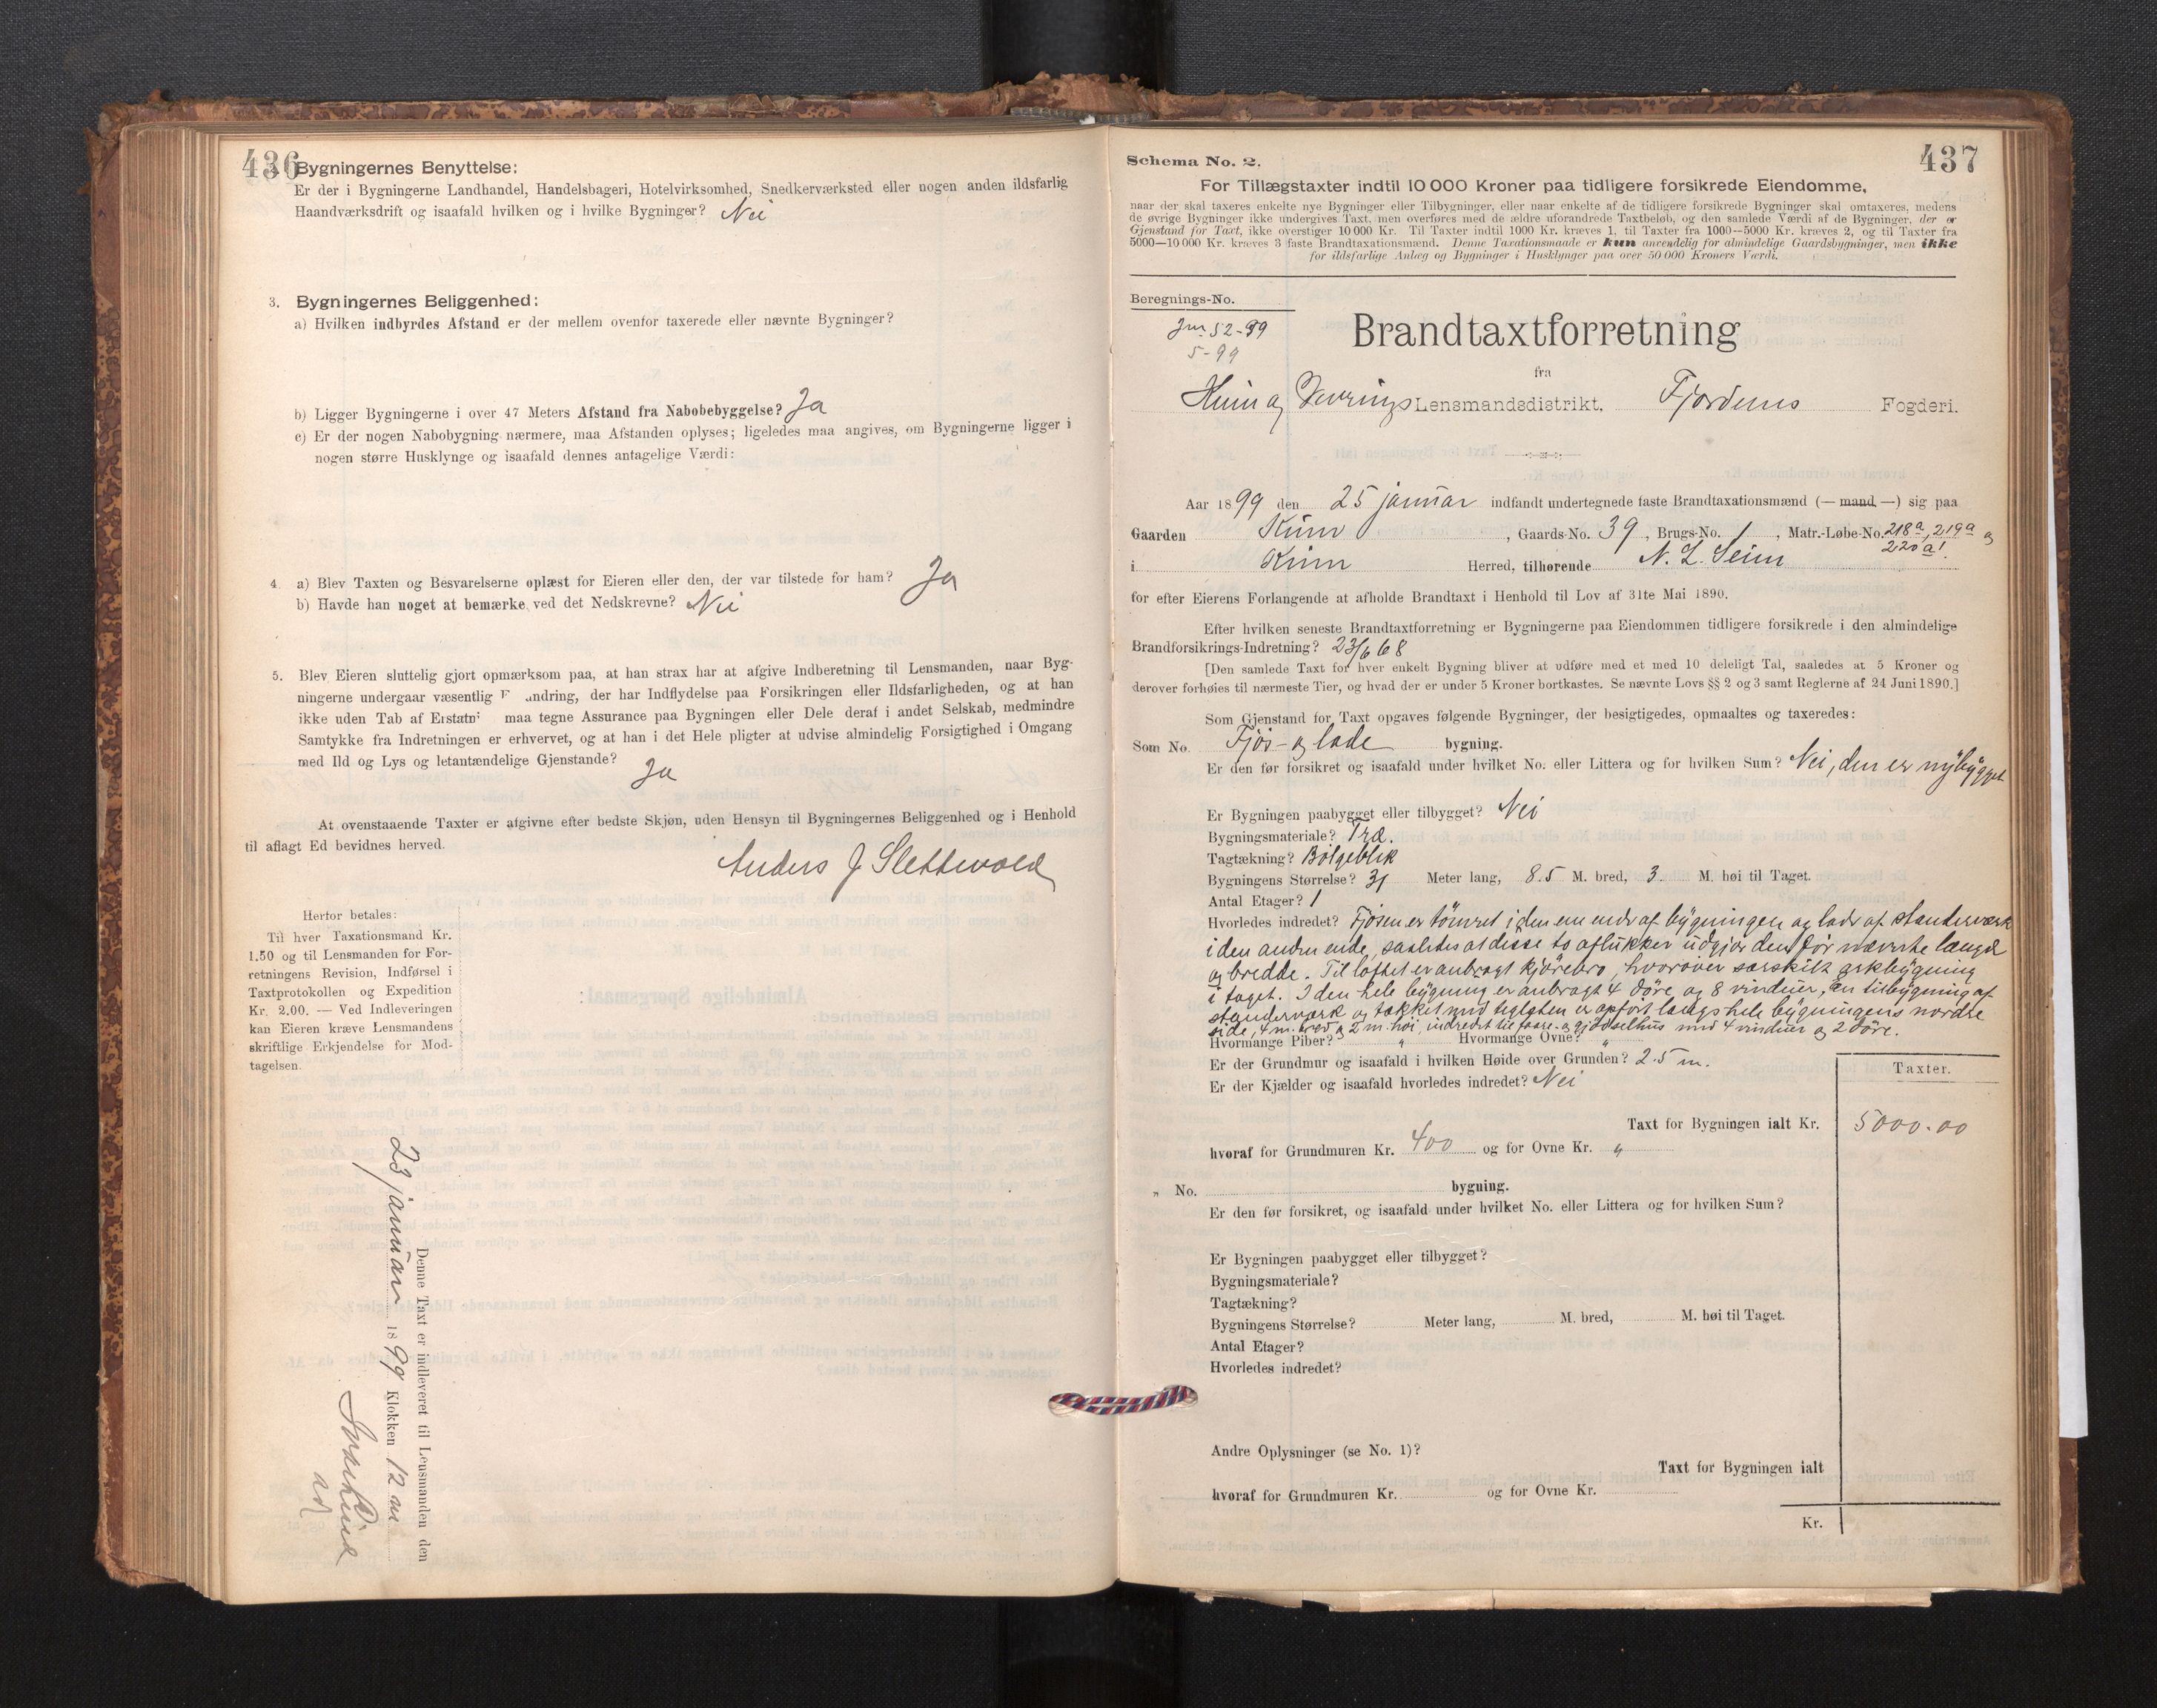 436
Bygningernes Benyttelse:
Er der i Bygningerne Landhandel, Handelsbageri, Hotelvirksomhed, Snedkerværksted eller nogen anden ildsfarlig
Haandværksdrift og isaafald hvilken og i hvilke Bygninger? Nei
3. Bygningernes Beliggenhed:
a) Hvilken indbyrdes Afstand er der mellem ovenfor taxerede eller nævnte Bygninger?
b) Ligger Bygningerne i over 47 Meters Afstand fra Nabobebyggelse? Ja
c) Er der nogen Nabobygning nærmere, maa Afstanden oplyses; ligeledes maa angives, om Bygningerne ligger i
nogen større Husklynge og isaafald dennes antagelige Værdi:
4. a) Blev Taxten og Besvarelserne oplæst for Eieren eller den, der var tilstede for ham? Ja
b) Havde han noget at bemærke ved det Nedskrevne? Nei
5. Blev Eieren sluttelig gjort opmærksom paa, at han strax har at afgive Indberetning til Lensmanden, naar Byg-
ningerne undergaar væsentlig F andring, der har Indflydelse paa Forsikringen eller Ildsfarligheden, og at han
ikke uden Tab af Erstatn maa tegne Assurance paa Bygningen eller Dele deraf i andet Selskab, medmindre
Samtykke fra Indretningen er erhvervet, og at han i det Hele pligter at udvise almindelig Forsigtighed i Omgang
med Ild og Lys og letantændelige Gjenstande? Ja
At ovenstaaende Taxter er afgivne efter bedste Skjøn, uden Hensyn til Bygningernes Beliggenhed og i Henhold
til aflagt Ed bevidnes herved.
Anders J Slettevold
Herfor betales:
Til hver Taxationsmand Kr.
1.50 og til Lensmanden for For-
retningens Revision, Indførsel i
Taxtprotokollen og Expedition
Kr. 2.00. — Ved Indleveringen
kan Eieren kræve Lensmandens
skriftlige Erkjendelse for Mod-
tagelsen.
Denne Taxt er indleveret til Lensmanden den
28 januar 1899 Klokken 12 m
437
Schema No. 2.
For Tillægstaxter indtil 10 000 Kroner paa tidligere forsikrede Eiendomme,
naar der skal taxeres enkelte nye Bygninger eller Tilbygninger, eller naar enkelte af de tidligere forsikrede Bygninger skal omtaxeres, medens
de øvrige Bygninger ikke undergives Taxt, men overføres med de ældre uforandrede Taxtbeløb, og den samlede Værdi af de Bygninger, der er
Gjenstand for Taxt, ikke overstiger 10 000 Kr. Til Taxter indtil 1000 Kr. kræves 1, til Taxter fra 1000—5000 Kr. kræves 2, og til Taxter fra
5000—10 000 Kr. kræves 3 faste Brandtaxationsmænd. Denne Taxationsmaade er kun anvendelig for almindelige Gaardsbygninger, men ikke
for ildsfarlige Anlæg og Bygninger i Husklynger paa over 50 000 Kroners Værdi.
Beregnings-No.
Jnr 52-99
5-99
Brandtaxtforretning
fra
Kinn og Vevrings Lensmandsdistrikt, Fjordenes Fogderi.
Aar 1899 den 25 januar indfandt undertegnede faste Brandtaxationsmænd (— mand —) sig paa
Gaarden Kinn, Gaards-No. 39, Brugs-No. 1, Matr.-Løbe-No. 218a, 219a og
220 a1
i Kinn Herred, tilhørende N. L. Seim
for efter Eierens Forlangende at afholde Brandtaxt i Henhold til Lov af 31te Mai 1890.
Efter hvilken seneste Brandtaxtforretning er Bygningerne paa Eiendommen tidligere forsikrede i den almindelige
Brandforsikrings-Indretning? 23/6 68
[Den samlede Taxt for hver enkelt Bygning bliver at udføre med et med 10 deleligt Tal, saaledes at 5 Kroner og
derover forhøies til nærmeste Tier, og hvad der er under 5 Kroner bortkastes. Se nævnte Lovs §§ 2 og 3 samt Reglerne af 24 Juni 1890.]
Som Gjenstand for Taxt opgaves følgende Bygninger, der besigtigedes, opmaaltes og taxeredes:
Som No. Fjøs- og lade bygning.
Er den før forsikret og isaafald under hvilket No. eller Littera og for hvilken Sum? Nei, den er nybygget
Er Bygningen paabygget eller tilbygget? Nei
Bygningsmateriale? Træ.
Tagtækning? Bølgeblik
Bygningens Størrelse? 31 Meter lang, 8.5 M. bred, 3 M. høi til Taget.
Antal Etager? 1
Hvorledes indredet? Fjøsen er tømret i den ene ende af bygningen og lade af standerværk
i den anden ende, saaledes at disse to aflukker udgjør den før nævnte længde
og bredde. Til loftet er anbragt kjørebro, hvorover særskilt arkbygning
i taget. I den hele bygning er anbragt 4 døre og 8 vinduer, En tilbygning af
standerværk og tækket med teglsten er opført langs hele bygningens nordre
side, 4 m. bred og 2 m. høi, indredet til faare- og gjødselhus med 4 vinduer og 2 døre.
Hvormange Piber? " Hvormange Ovne? "
Er der Grundmur og isaafald i hvilken Høide over Grunden? 2.5 m.
Er der Kjælder og isaafald hvorledes indredet? Nei
Taxter.
Taxt for Bygningen ialt Kr. 5000.00
hvoraf for Grundmuren Kr. 400 og for Ovne Kr. "
„ No. bygning.
Er den før forsikret, og isaafald under hvilket No. eller Littera og for hvilken Sum?
Er Bygningen paabygget eller tilbygget?
Bygningsmateriale?
Tagtækning?
Bygningens Størrelse? Meter lang, M. bred, M. høi til Taget.
Antal Etager?
Hvorledes indredet?
Andre Oplysninger (se No. 1)?
Taxt for Bygningen ialt
hvoraf for Grundmuren Kr. og for Ovne Kr.
Kr.